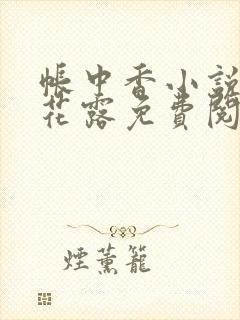 帳中香小說
花露免費閱
煙薰籠